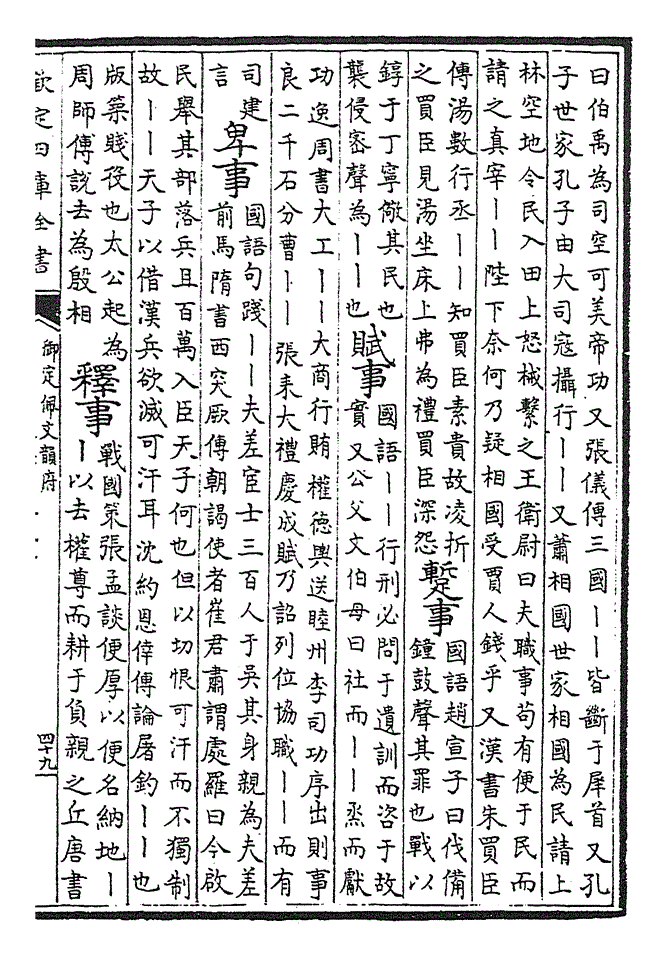 曰伯禹為司空可美帝功又張儀傳三國丨丨皆斷于犀首又孔
子世家孔子由大司寇攝行丨丨又蕭相國世家相國為民請上
林空地令民入田上怒械繫之王衛尉曰夫職事苟有便于民而
請之真宰丨丨陛下奈何乃疑相國受賈人錢乎又漢書朱買臣
傳湯數行丞丨丨知買臣素貴故凌折
之買臣見湯坐床上弗為禮買臣深怨
蹔事
國語趙宣子曰伐備
鐘鼓聲其罪也戰以
錞于丁寧儆其民也
襲侵密聲為丨丨也
賦事
國語丨丨行刑必問于遺訓而咨于故
實又公父文伯母曰社而丨丨烝而獻
功逸周書大工丨丨大商行賄權德輿送睦州李司功序出則事
良二千石分曹丨丨張耒大禮慶成賦乃詔列位協職丨丨而有
司建
言
卑事
國語句踐丨丨夫差宦士三百人于吳其身親為夫差
前馬隋書西突厥傳朝謁使者崔君肅謂處羅曰今啟
民舉其部落兵且百萬入臣天子何也但以切恨可汗而不獨制
故丨丨天子以借漢兵欲滅可汗耳沈約恩倖傳論屠釣丨丨也
版築賤役也太公起為
周師傅說去為殷相
釋事
戰國策張孟談便厚以便名納地丨
丨以去權尊而耕于負親之丘唐書
欽定四庫全書
御定佩文韻府
四十九